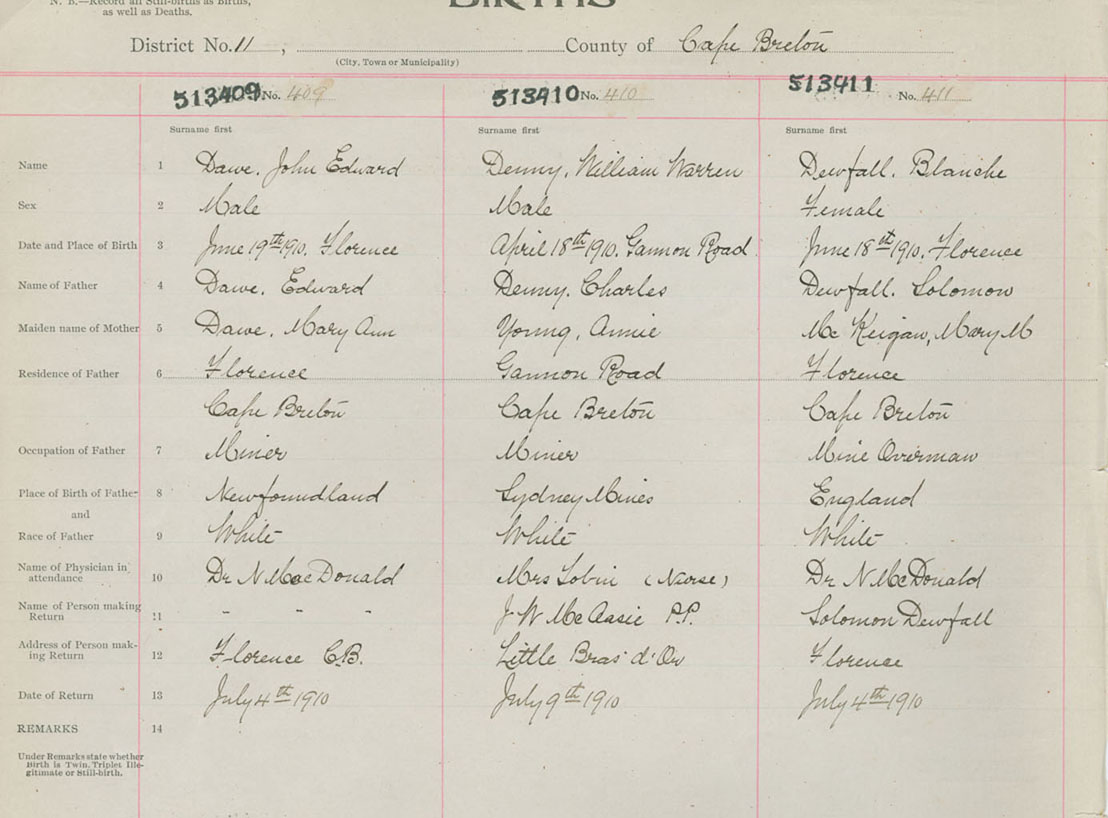 N. B.—Record all Still-births as Births,
as well as Deaths.
BIRTHS
District No. 11, County of Cape Breton
(City, Town or Municipality)
513409 No. 409 513410 No. 410 513411 No. 411
Surname first Surname first Surname first
Name 1 Dawe, John Edward Denny, William Warren Dewfall, Blanche
Sex 2 Male Male Female
Date and Place of Birth 3 June 19th 1910, Florence April 18th 1910, Gannon Road June 18th 1910, Florence
Name of Father 4 Dawe, Edward Denny, Charles Dewfall, Solomon
Maiden name of Mother 5 Dawe, Mary Ann Young, Annie Mc Keigan, Mary M
Residence of Father 6 Florence Gannon Road Florence
Cape Breton Cape Breton Cape Breton
Occupation of Father 7 Miner Miner Mine Overman
Place of Birth of Father 8 Newfoundland Sydney Mines England
and
Race of Father 9 White White White
Name of Physician in
attendance 10 Dr N MacDonald Mrs (Nurse) Dr N McDonald
Name of Person making
Return 11 " " " J W P.P. Solomon Dewfall
Address of Person mak-
ing Return 12 Florence C.B. Little Bras d'Or Florence
Date of Return 13 July 4th 1910 July 9th 1910 July 4th 1910
REMARKS 14
Under Remarks state whether
Birth is Twin, Triplet Ille-
gitimate or Still-birth.